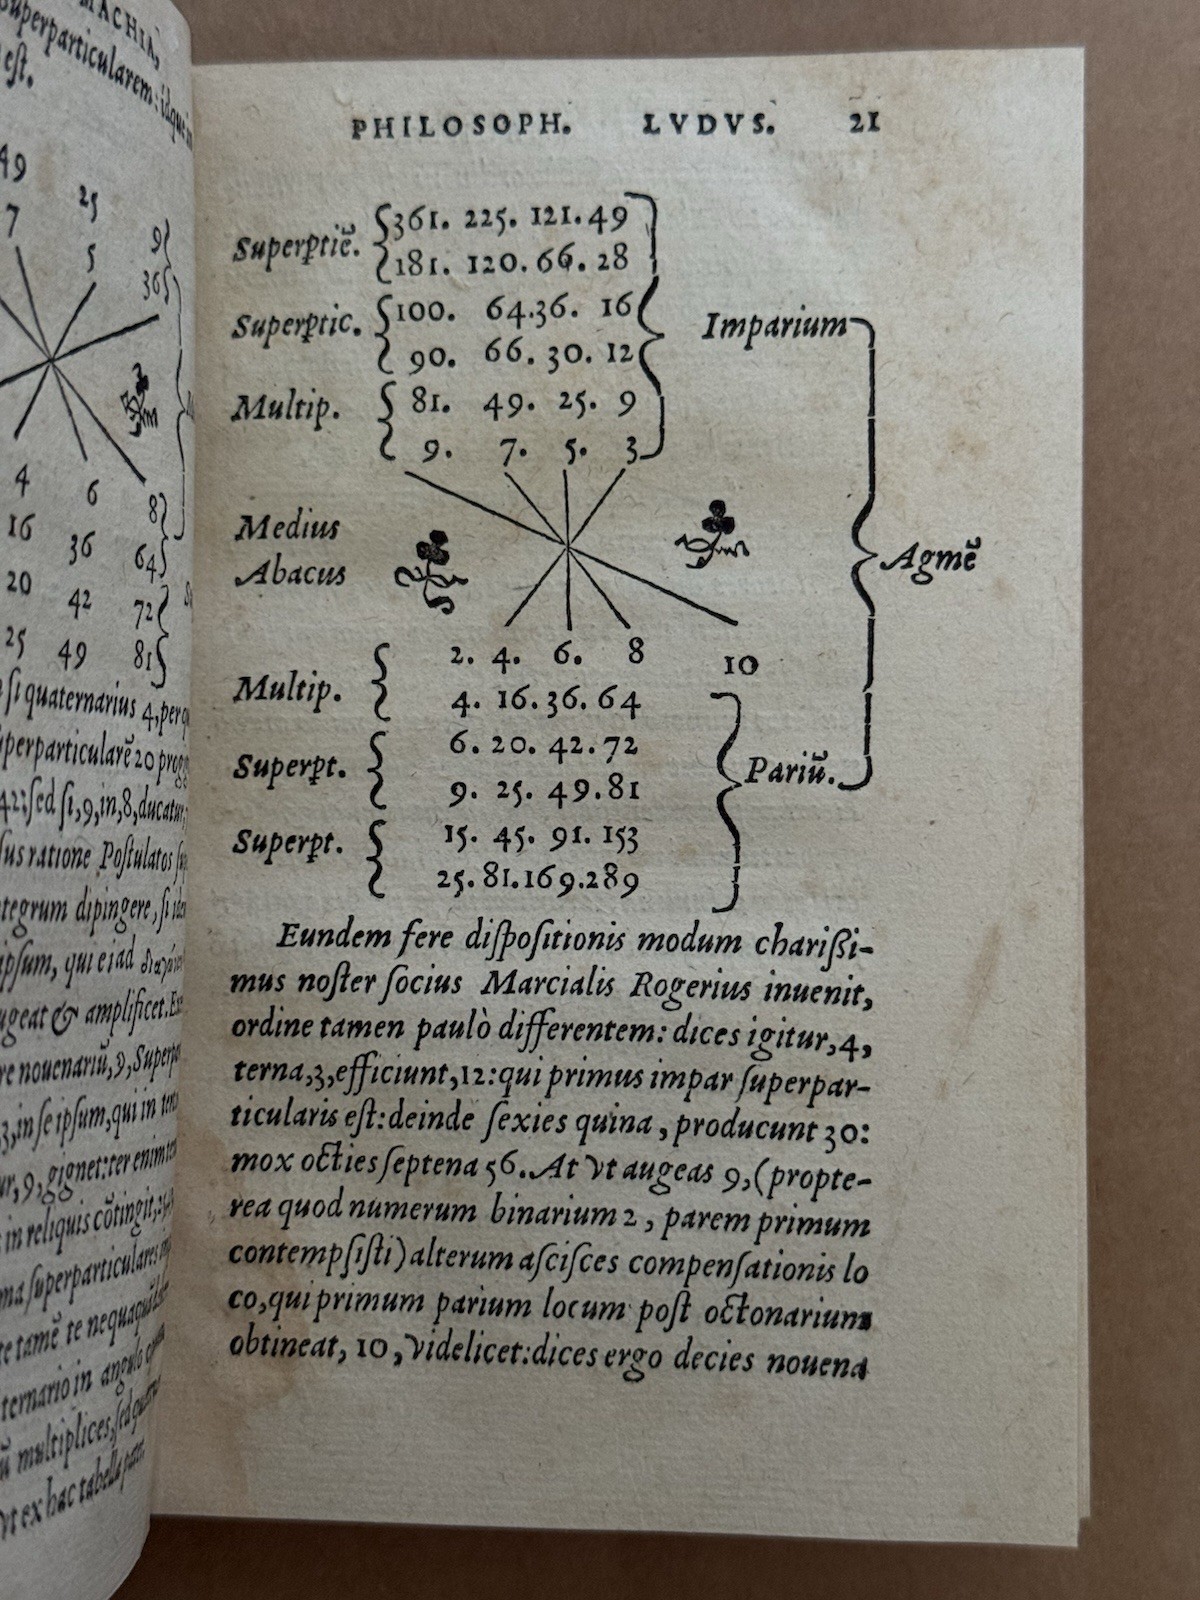 MACHIA,
superparticularem: idque in
est.
49
25
7
5
9
36
4
6
8
16
36
64
20
42
72
25
49
81
si quaternarius 4, per
superparticularē 20 progg
42: sed si, 9, in, 8, ducatur,
sus ratione Postulatos
tegrum dipingere, si
ipsum, qui ei ad
augeat & amplificet.
re nouenariū, 9,
3, in se ipsum, qui in
ur, 9, gignet: ter enim
in reliquis cōtingit,
ma superparticulares
te tamē te nequaquā
ternario in angulo
ū multiplices, sed
vt ex hac tabella
PHILOSOPH. LVDVS. 21
Superptiē. 361. 225. 121. 49
181. 120. 66. 28
Superptic. 100. 64. 36. 16
90. 66. 30. 12
Imparium
Multip. 81. 49. 25. 9
9. 7. 5. 3
Medius
Abacus
Agmē
2. 4. 6. 8 10
Multip. 4. 16. 36. 64
Superpt. 6. 20. 42. 72
9. 25. 49. 81
Pariū.
Superpt. 15. 45. 91. 153
25. 81. 169. 289
Eundem fere dispositionis modum charissi-
mus noster socius Marcialis Rogerius inuenit,
ordine tamen paulò differentem: dices igitur, 4,
terna, 3, efficiunt, 12: qui primus impar superpar-
ticularis est: deinde sexies quina, producunt 30:
mox octies septena 56. At vt augeas 9, (propte-
rea quod numerum binarium 2, parem primum
contempsisti) alterum ascisces compensationis lo
co, qui primum parium locum post octonarium
obtineat, 10, videlicet: dices ergo decies nouena